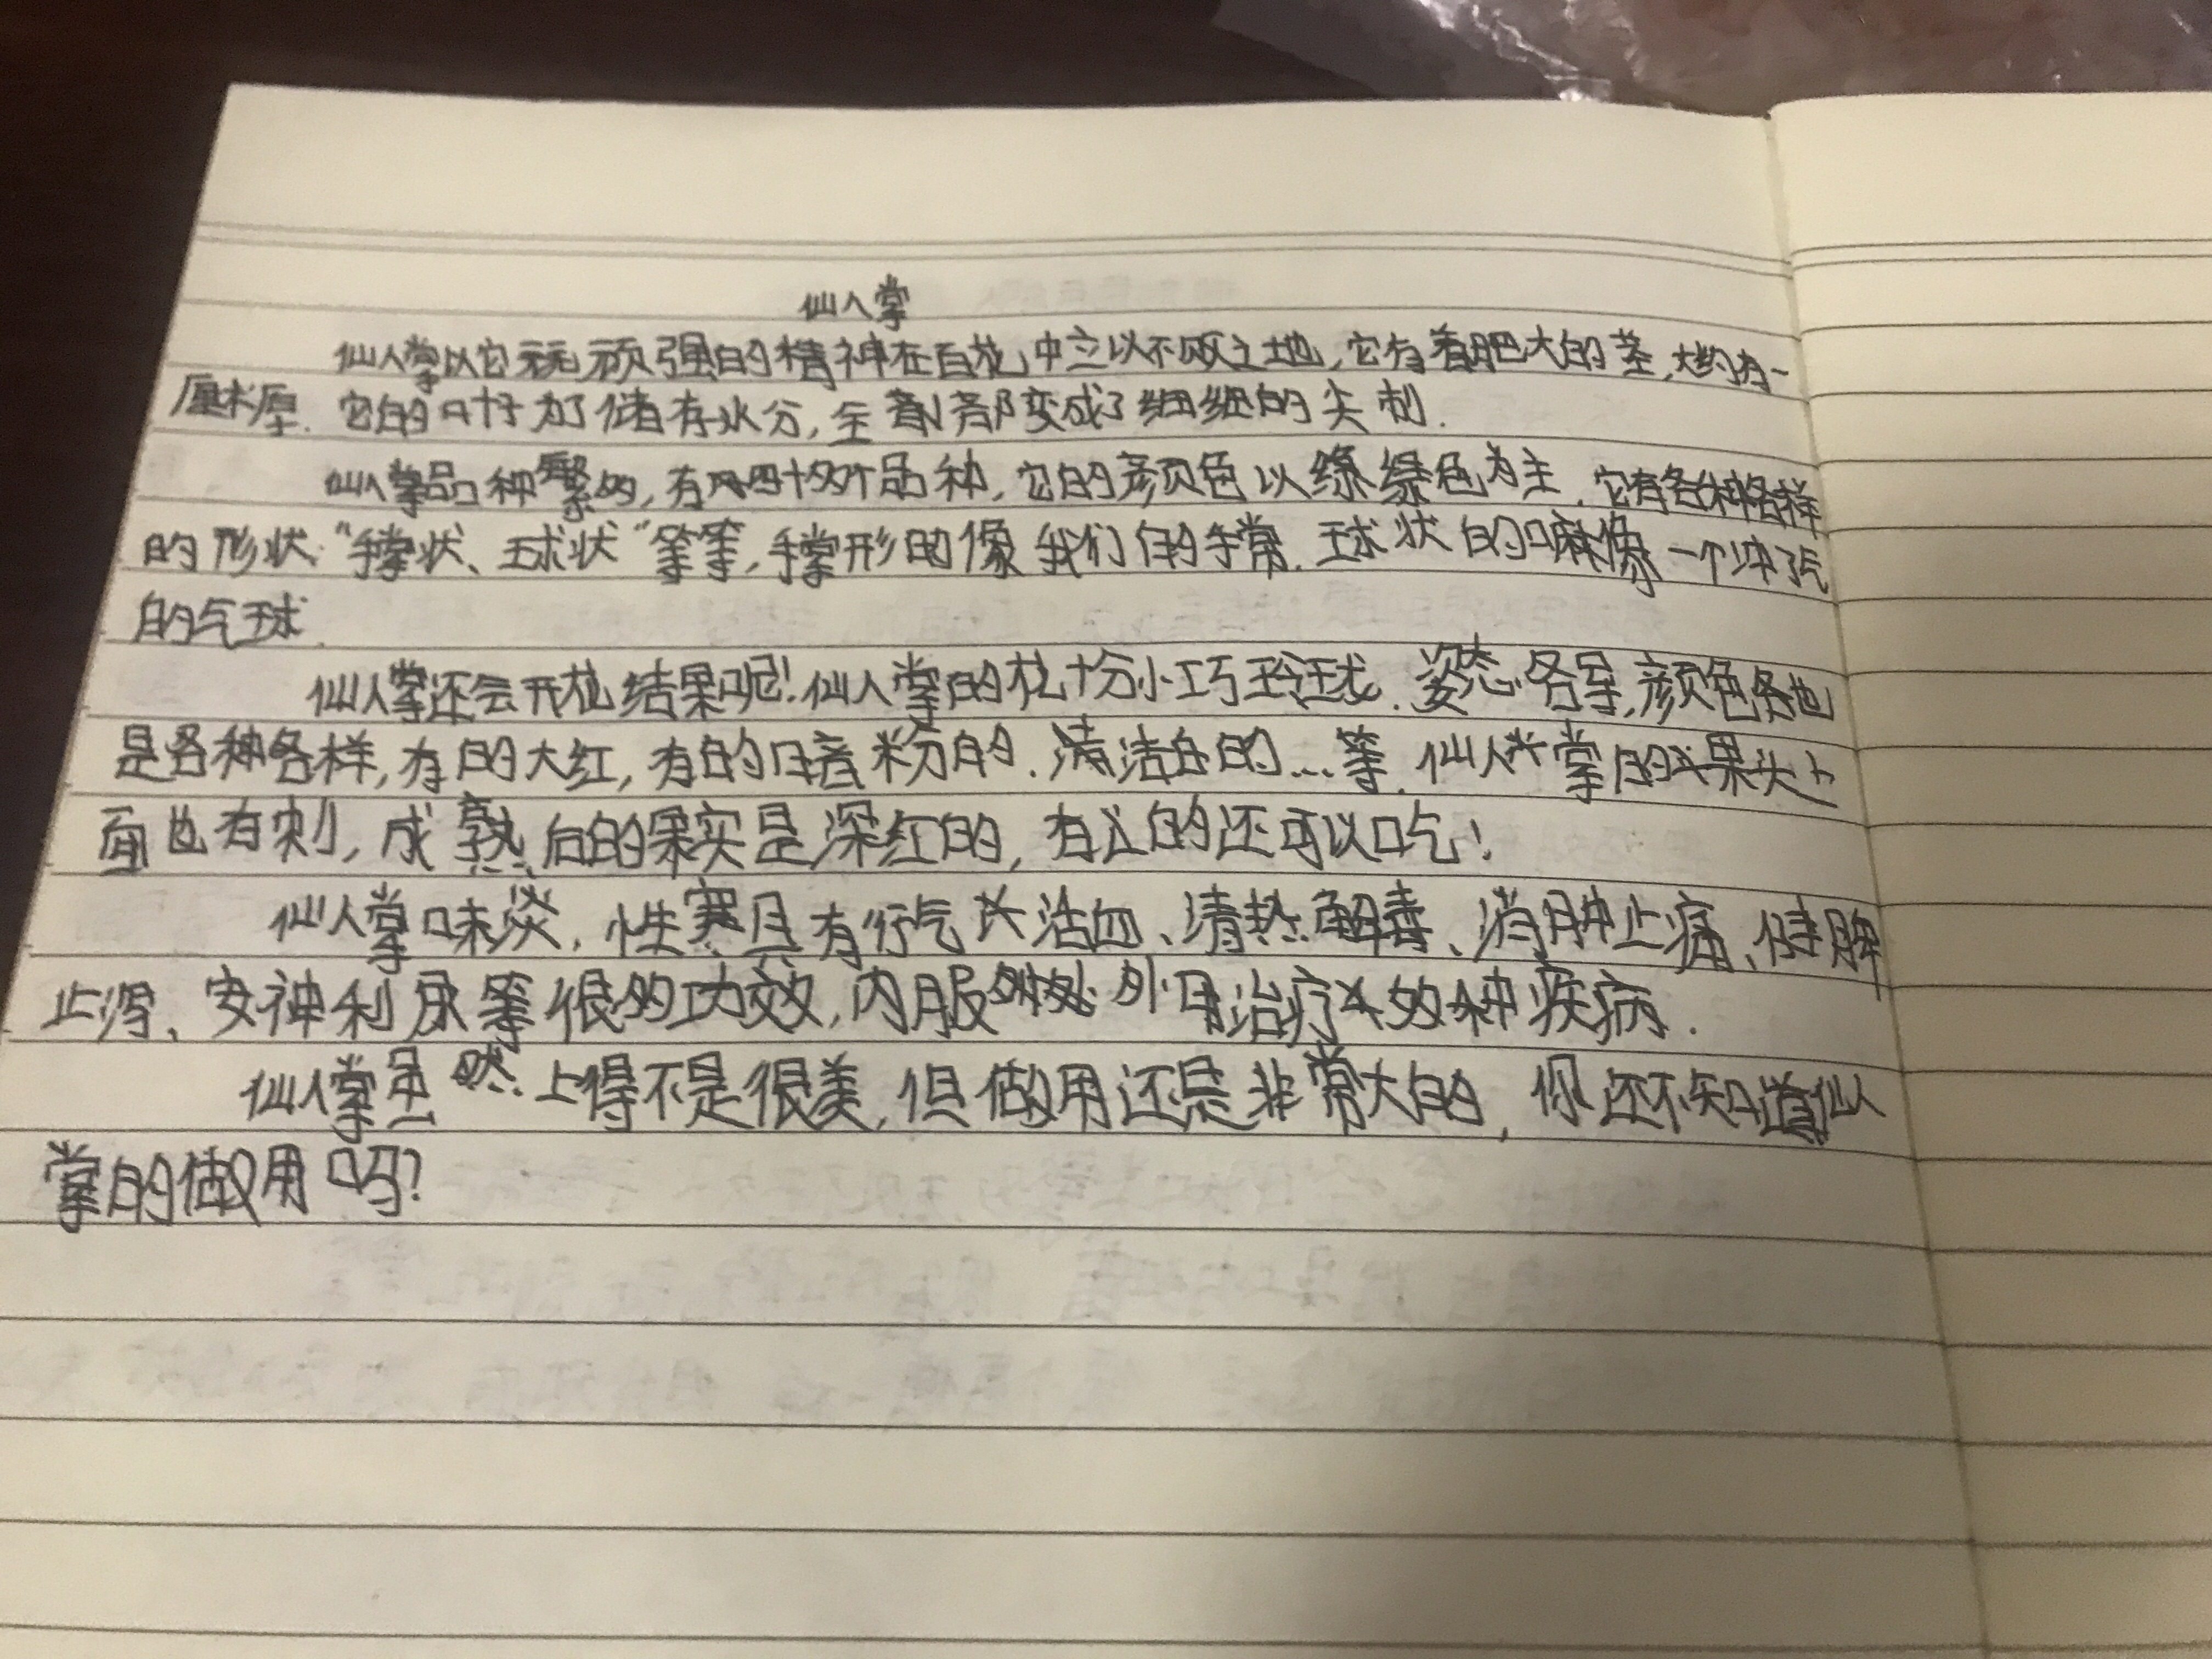 仙人掌
仙人掌以它顽强的精神在百花中立以不败之地,它有着肥大的茎,大约有一
厘米厚.它的叶子为了储存水分,全部都变成了细细的尖刺.
仙人掌品种繁多,有四十多个品种,它的颜色以绿色为主.它有各种各样
的形状“手掌状、球状”等等,手掌形的像我们的手掌.球状的嘛像一个冲了气
的气球.
仙人掌还会开花结果呢!仙人掌的花十分小巧玲珑.姿态各异,颜色也
是各种各样,有的大红,有的暗粉的.清洁白的...等.仙人掌的果头上
面也有刺,成熟后的果实是深红的,有的还可以吃!
仙人掌味淡,性寒具有行气活血、清热解毒、消肿止痛、健脾
止泻、安神利尿等很多功效,内服外用治疗多种疾病.
仙人掌虽然上得不是很美,但做用还是非常大的,你还不知道仙人
掌的做用吗?